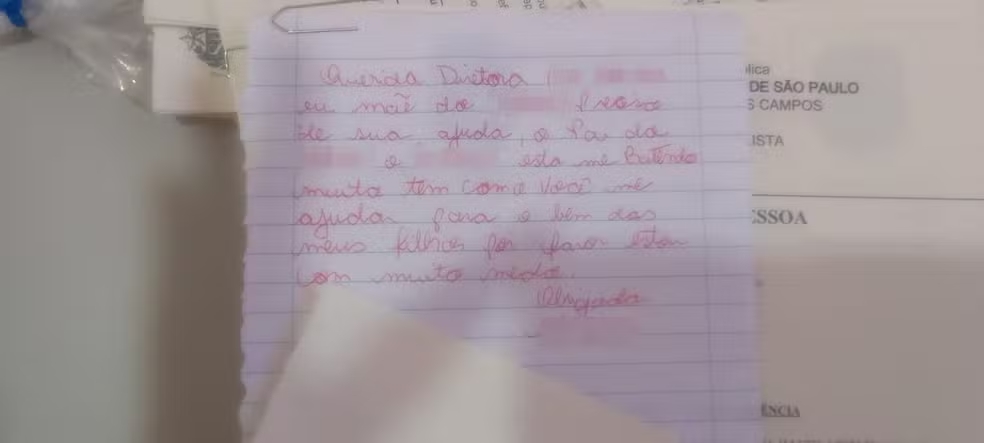 Querida Diretora
eu mãe do Preciso
de sua ajuda, o Pai da
e o esta me Batendo
muito tem como você me
ajudar para o bem dos
meus filhos por favor estou
com muito medo.
Obrigada
ública
DE SÃO PAULO
S CAMPOS
ISTA
ESSOA
ÊNCIA